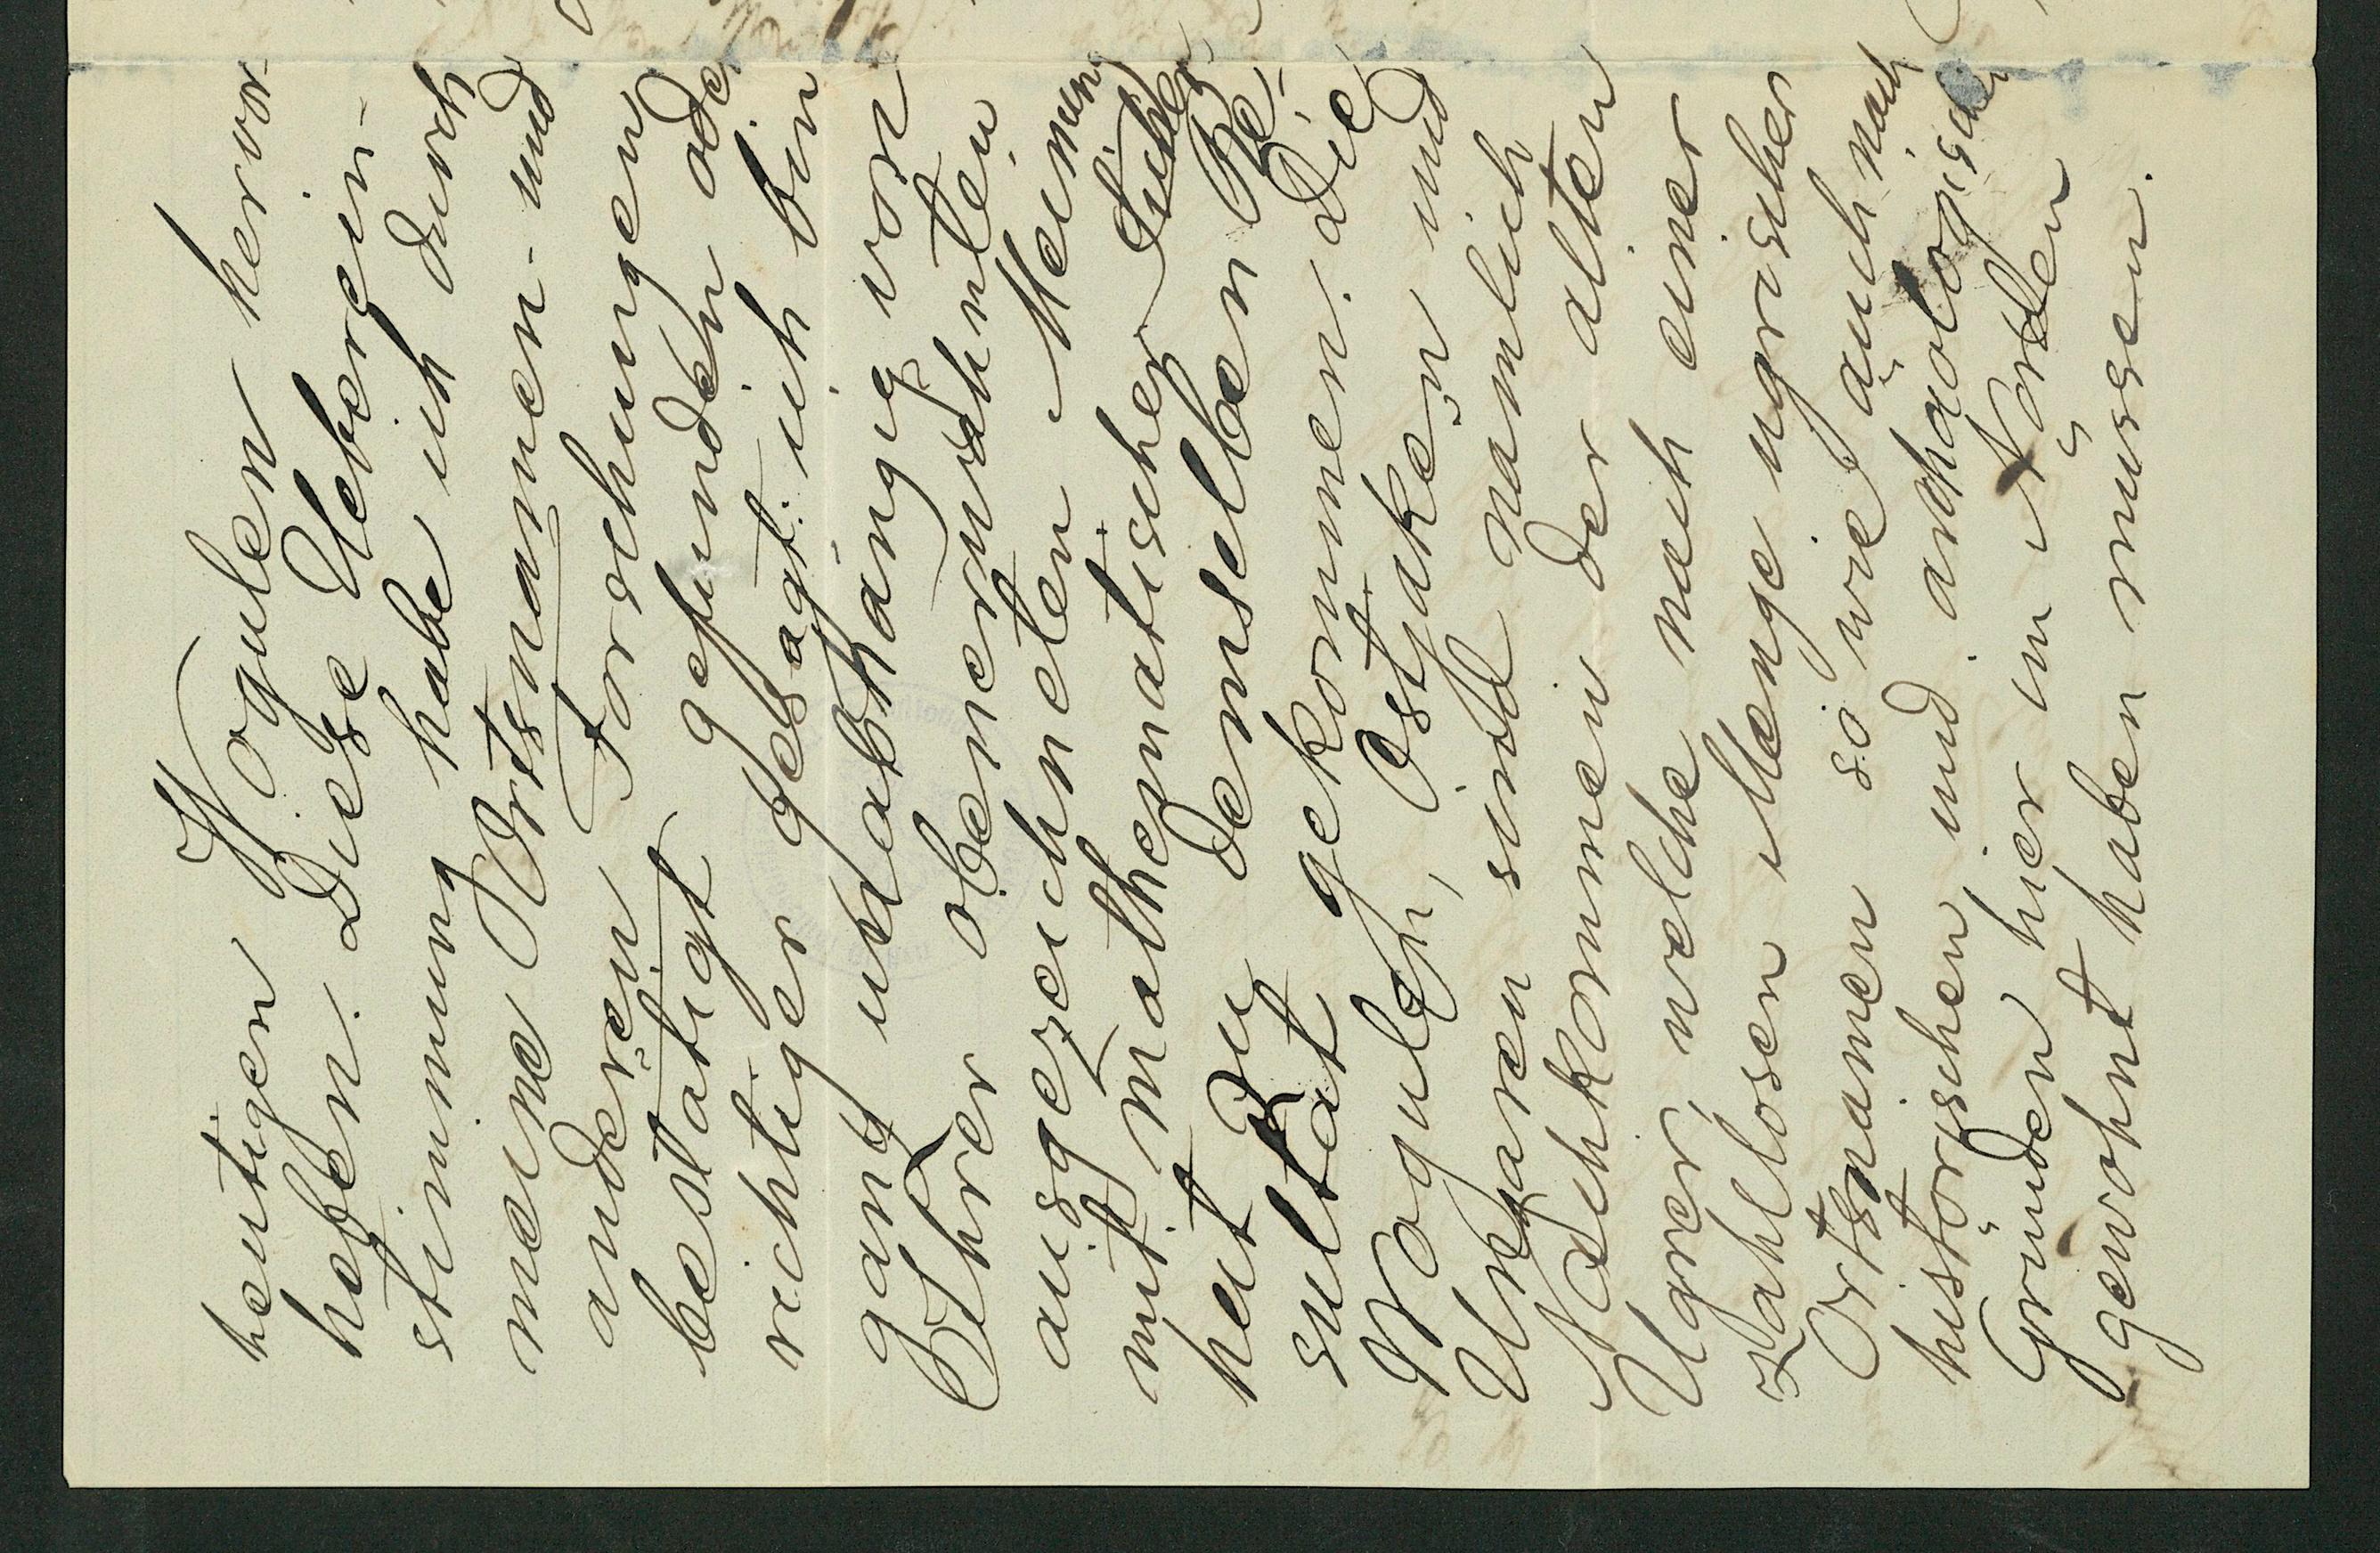 heutigen Wogulen hervor-
heben. DieseUeberein-
stimmung habe ich durch
meine Ortsnamen- und
anderen Forschungen
bestätigt gefunden oder
richtiger gesagt: ich bin
ganz unabhängig von
Ihrer obenerwähnten
ausgezeichneten Meinung
mit mathematischer Sicher-
heit zu demselben Re-
sultat gekommen. Die
Wogulen, Ostjaken und
Ungaren sind nämlich
Nachkommen der alten
Ugrer, welche nach einer
zahllosen Menge ugrischer
Ortsnamen so wie auch nach
historischen und archäologischen
Gründen hier im Norden
gewohnt haben müssen.